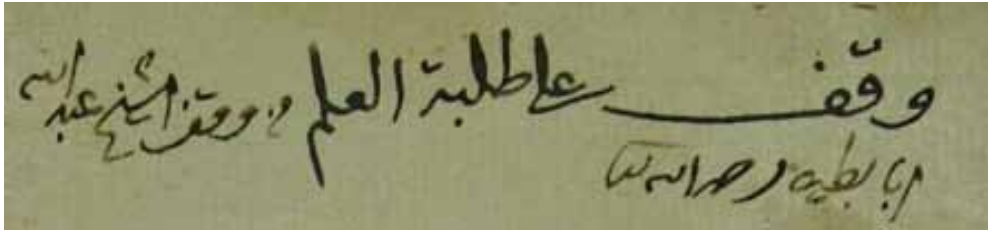 وقف على طلبة العلم من وقف الشيخ عبد الله
ابا بطين رحمه الله